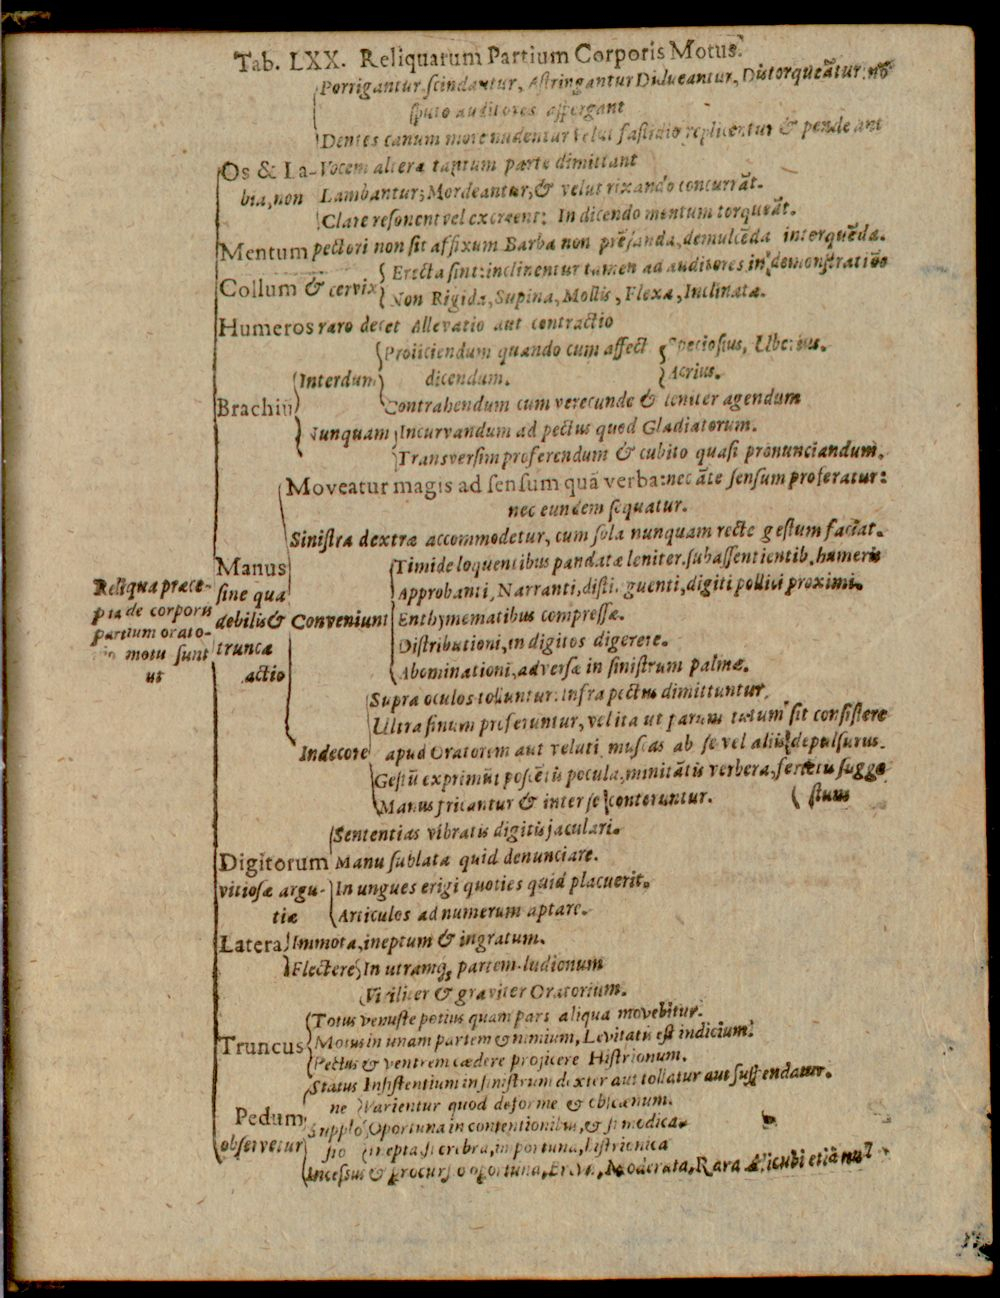 Tab. LXX. Reliquarum Partium Corporis Motus.
Porrigantur. scindantur, Astringantur Diducantur, Distorqueãtur: nõ
sputo auditores aspergant
Dentes canum more nudentur velut fastidio replicentur & pendeant
Os & La- Vocem altera tantum parte dimittant
bia, non Lambantur; Mordeantur, & velut rixando concurrãt.
Clare resonent vel excreent: In dicendo mentum torqueãt.
Mentum pectori non sit affixum Barba non prẽsanda, demulcẽda interquẽda.
Collum & cervix
Erecta sint: inclinentur tamen ad auditores in demonstratiõe
Non Rigida, Supina, Mollis, Flexa, Inclinata.
Humeros raro decet Allevatio aut contractio
Brachiũ
Interdum
Proiiciendum quando cum affect Speciosius, Uberius.
dicendum. Acrius.
Contrahendum cum verecunde & leniter agendum
Nunquam Incurvandum ad pectus quod Gladiatorum.
Transversim proferendum & cubito quasi pronunciandum.
Reliqua præce-
pta de corporis
partium orato-
motu sunt
ut
Manus
sine qua
debilis &
trunca
actio
Moveatur magis ad sensum quã verba: nec ãte sensum proferatur:
nec eundem sequatur.
Sinistra dextræ accommodetur, cum sola nunquam recte gestum faciat.
Conveniunt
Timide loquentibus pandatæ leniter. subassentientib. humeris
Approbanti, Narranti, distinguenti, digiti pollici proximi.
Enthymematibus compressæ.
Distributioni, in digitos digerere.
Abominationi, adversæ in sinistrum palmæ.
Indecore
Supra oculos tolluntur. Infra pectus dimittuntur,
Ultra sinum proferuntur, vel ita ut parum tutum sit consistere
apud Oratorem aut veluti muscas ab se vel aliis depulsurus.
Gestũ exprimũt poscẽtis pocula, minitãtis verbera, sugge
Manus fricantur & inter se conteruntur. ( stum
Digitorum
vitiosæ argu-
tiæ
Sententias vibratis digitis jaculari.
Manu sublata quid denunciare.
In ungues erigi quoties quid placuerit.
Articulos ad numerum aptare.
Latera Immota, ineptum & ingratum.
Flectere In utramq; partem. ludionum
Viriliter & graviter Oratorium.
Truncus
Totus venuste potius quam pars aliqua movebitur.
Motus in unam partem & nimium, Levitatis est indicium.
Pectus & ventrem cædere projicere Histrionum.
Pedum
observetur
Status Insistentium in sinistrum dexter aut tollatur aut suspendatur.
ne Varientur quod deforme & obscænum.
Supplo- Oportuna in contentionibus, & si modica.
sio Inepta si crebra, importuna, histrionica
Incessus & procursio oportuna, Brevis, Moderata, Rara Alicubi etiã